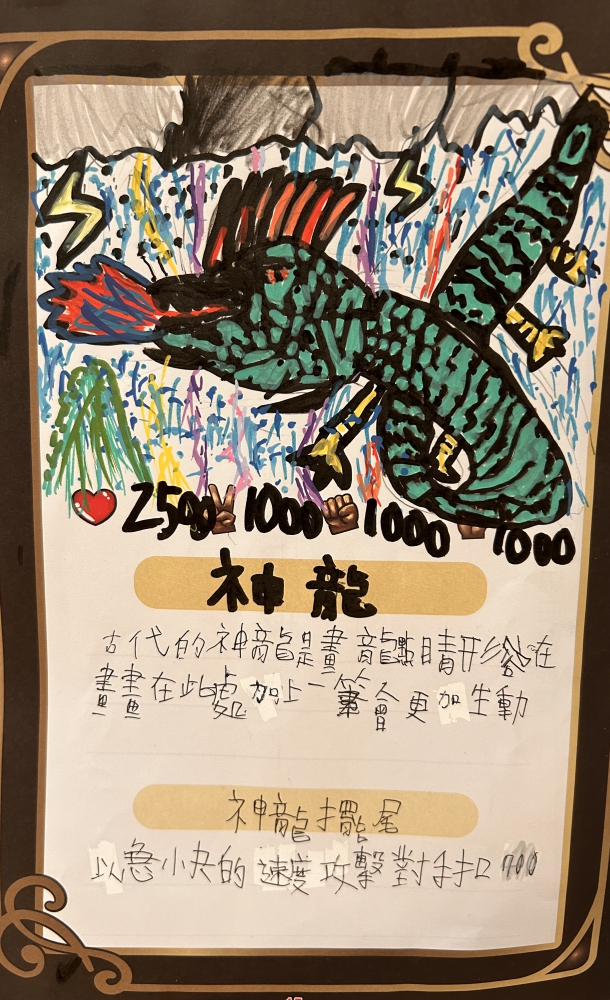 2500 1000 1000 1000
神龍
古代的神龍是畫龍點睛形容在
畫畫在此處加上一筆會更加生動
神龍擺尾
以急小夬的速度攻擊對手扣700